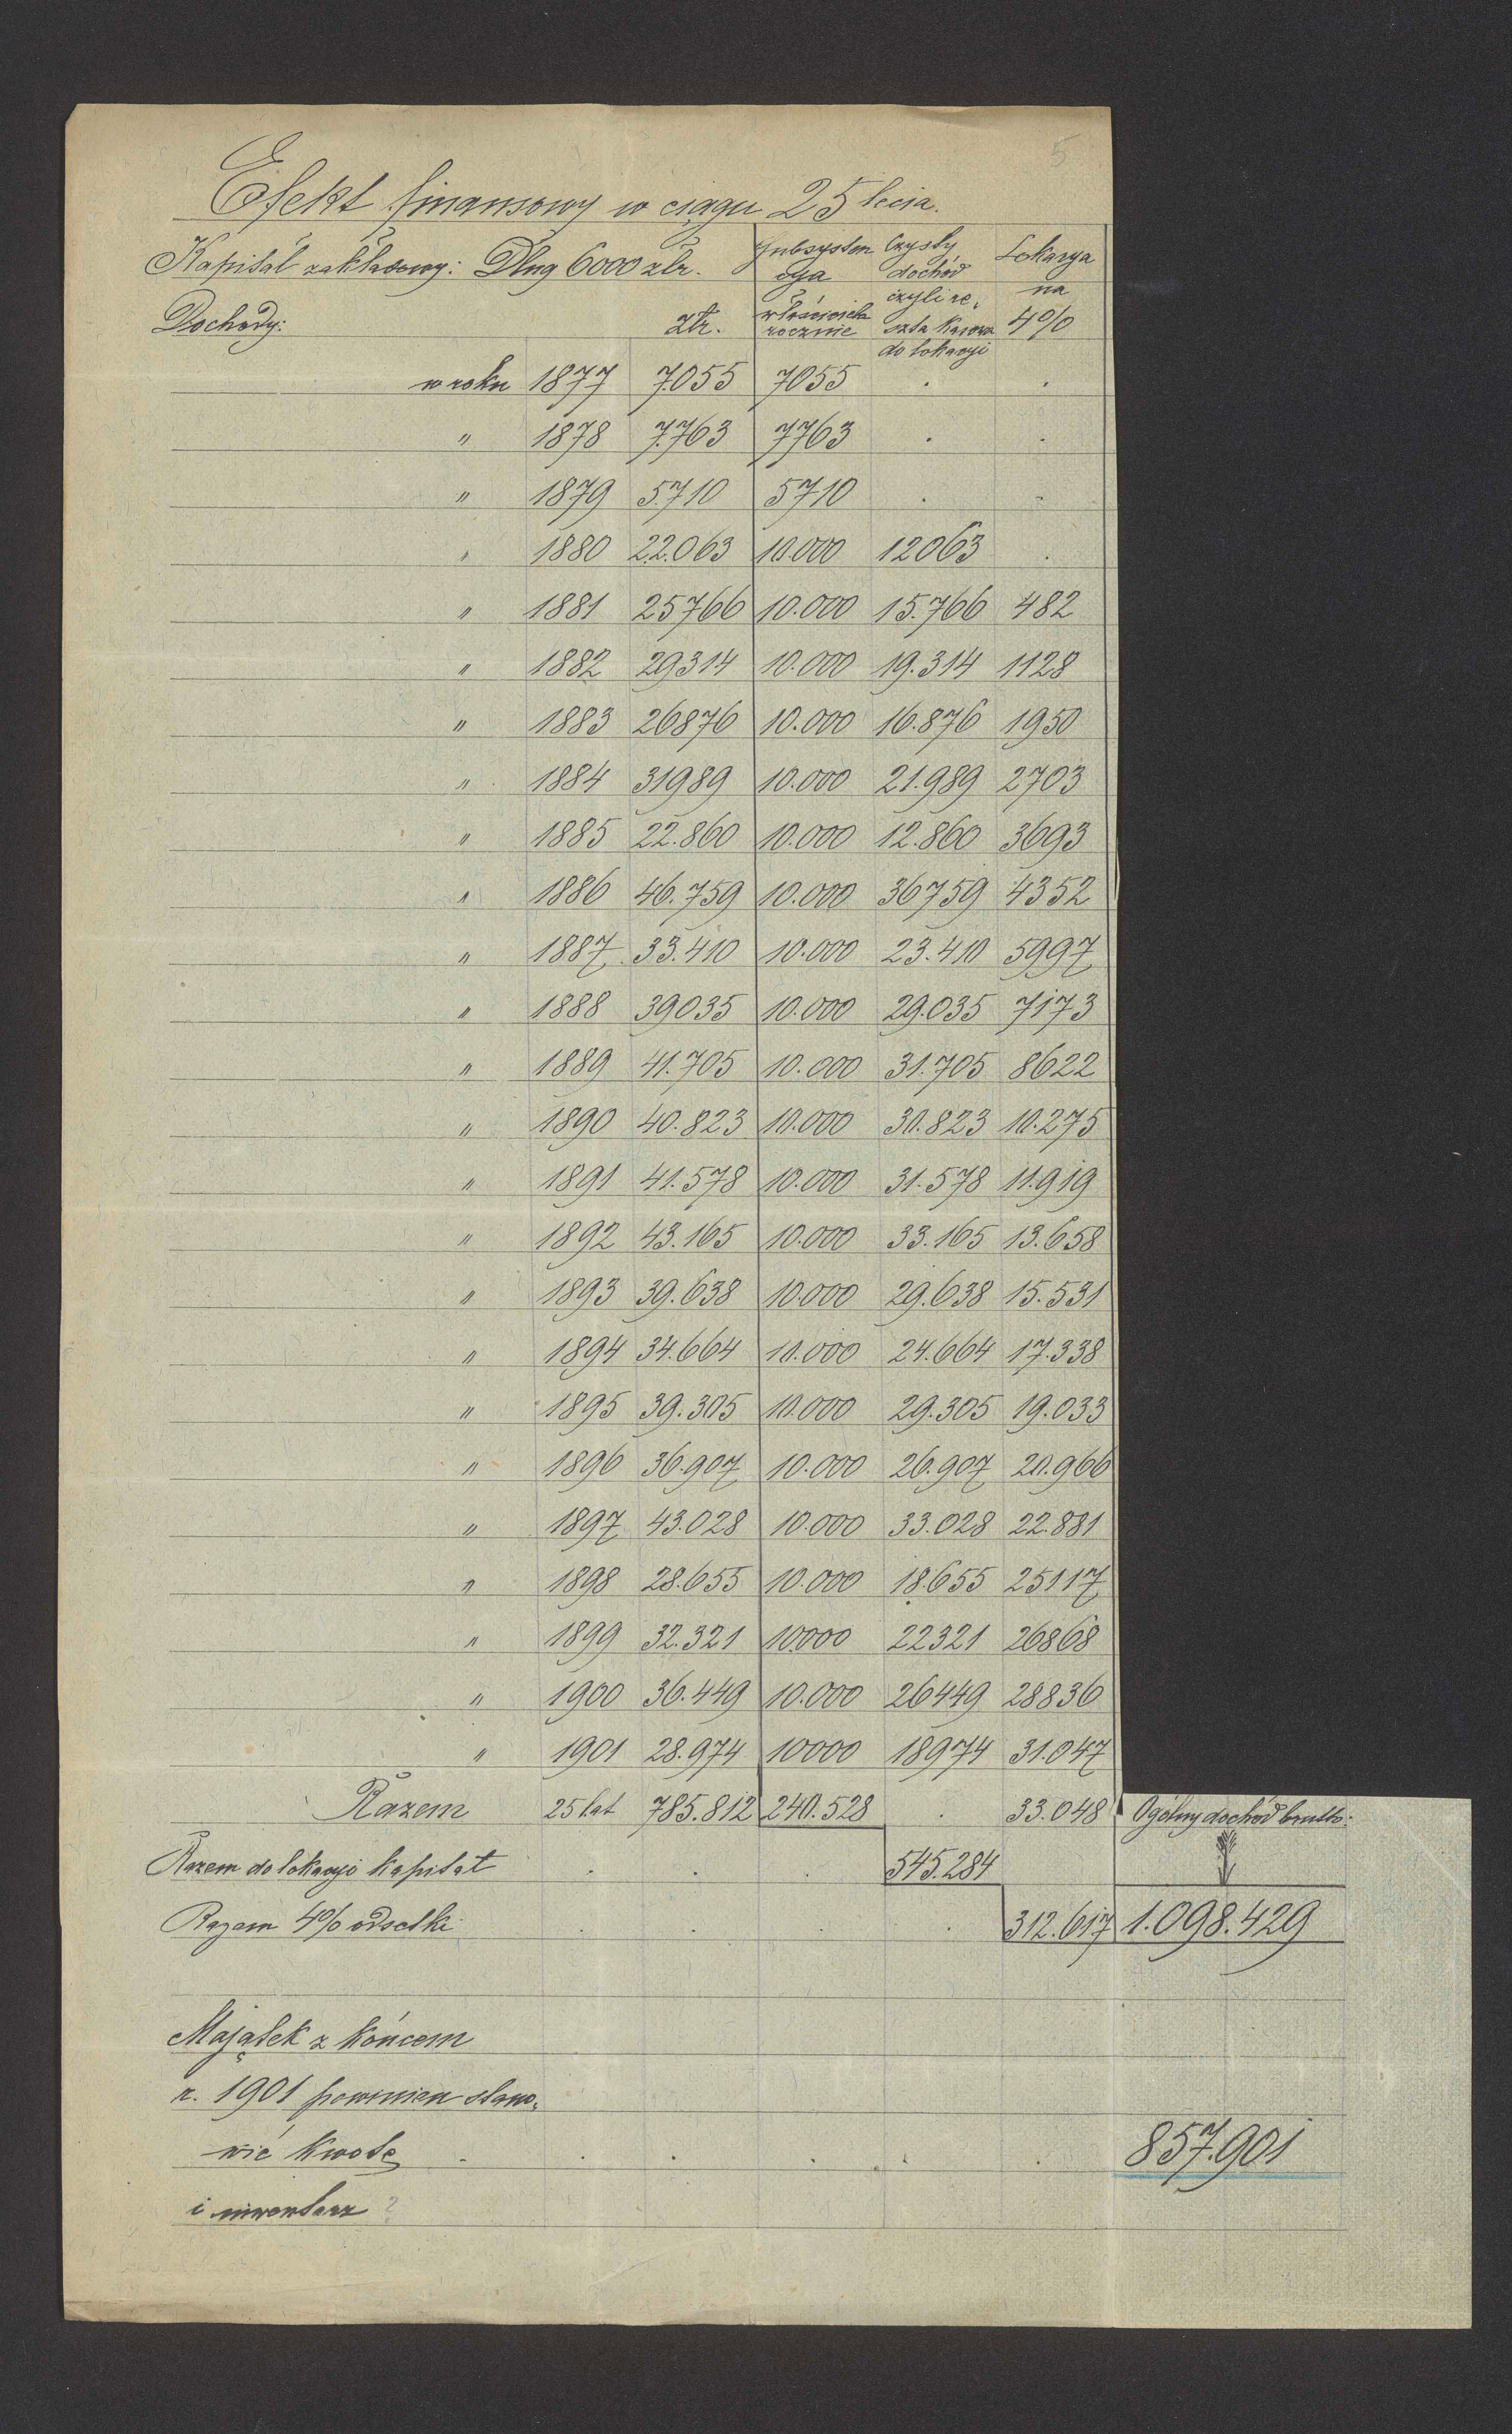 5
Efekt finansowy w ciągu 25 lecia.
Kapitał zakładowy: Dług 6000 złr. Subsysten Czysty Lokacya
cya dochód na
Dochody: złr. właściciela czyli re- 4%
rocznie szta kasowa
do lokacyi
w roku 1877 7.055 7055 . .
" 1878 7.763 7763 . .
" 1879 5.710 5710 . .
" 1880 22.063 10.000 12063 .
" 1881 25766 10.000 15.766 482
" 1882 29314 10.000 19.314 1128
" 1883 26876 10.000 16.876 1950
" 1884 31989 10.000 21.989 2703
" 1885 22.860 10.000 12.860 3693
" 1886 46.759 10.000 36759 4352
" 1887 33.410 10.000 23.410 5997
" 1888 39035 10.000 29.035 7173
" 1889 41.705 10.000 31.705 8622
" 1890 40.823 10.000 30.823 10.275
" 1891 41.578 10.000 31.578 11.919
" 1892 43.165 10.000 33.165 13.658
" 1893 39.638 10.000 29.638 15.531
" 1894 34.664 10.000 24.664 17.338
" 1895 39.305 10.000 29.305 19.033
" 1896 36.907 10.000 26.907 20.966
" 1897 43.028 10.000 33.028 22.881
" 1898 28.655 10.000 18.655 25117
" 1899 32.321 10.000 22321 26868
" 1900 36.449 10.000 26449 28836
" 1901 28.974 10000 18974 31.047
Razem 25 lat 785.812 240.528 . 33.048 Ogólny dochód brutto:
Razem do lokacyi kapitał . . . 545.284
Razem 4% odsetki . . . . 312.617 1.098.429
Majątek z końcem
r. 1901 powinien stano-
wić kwotę . . . . . . 857.901
i inwentarz ?